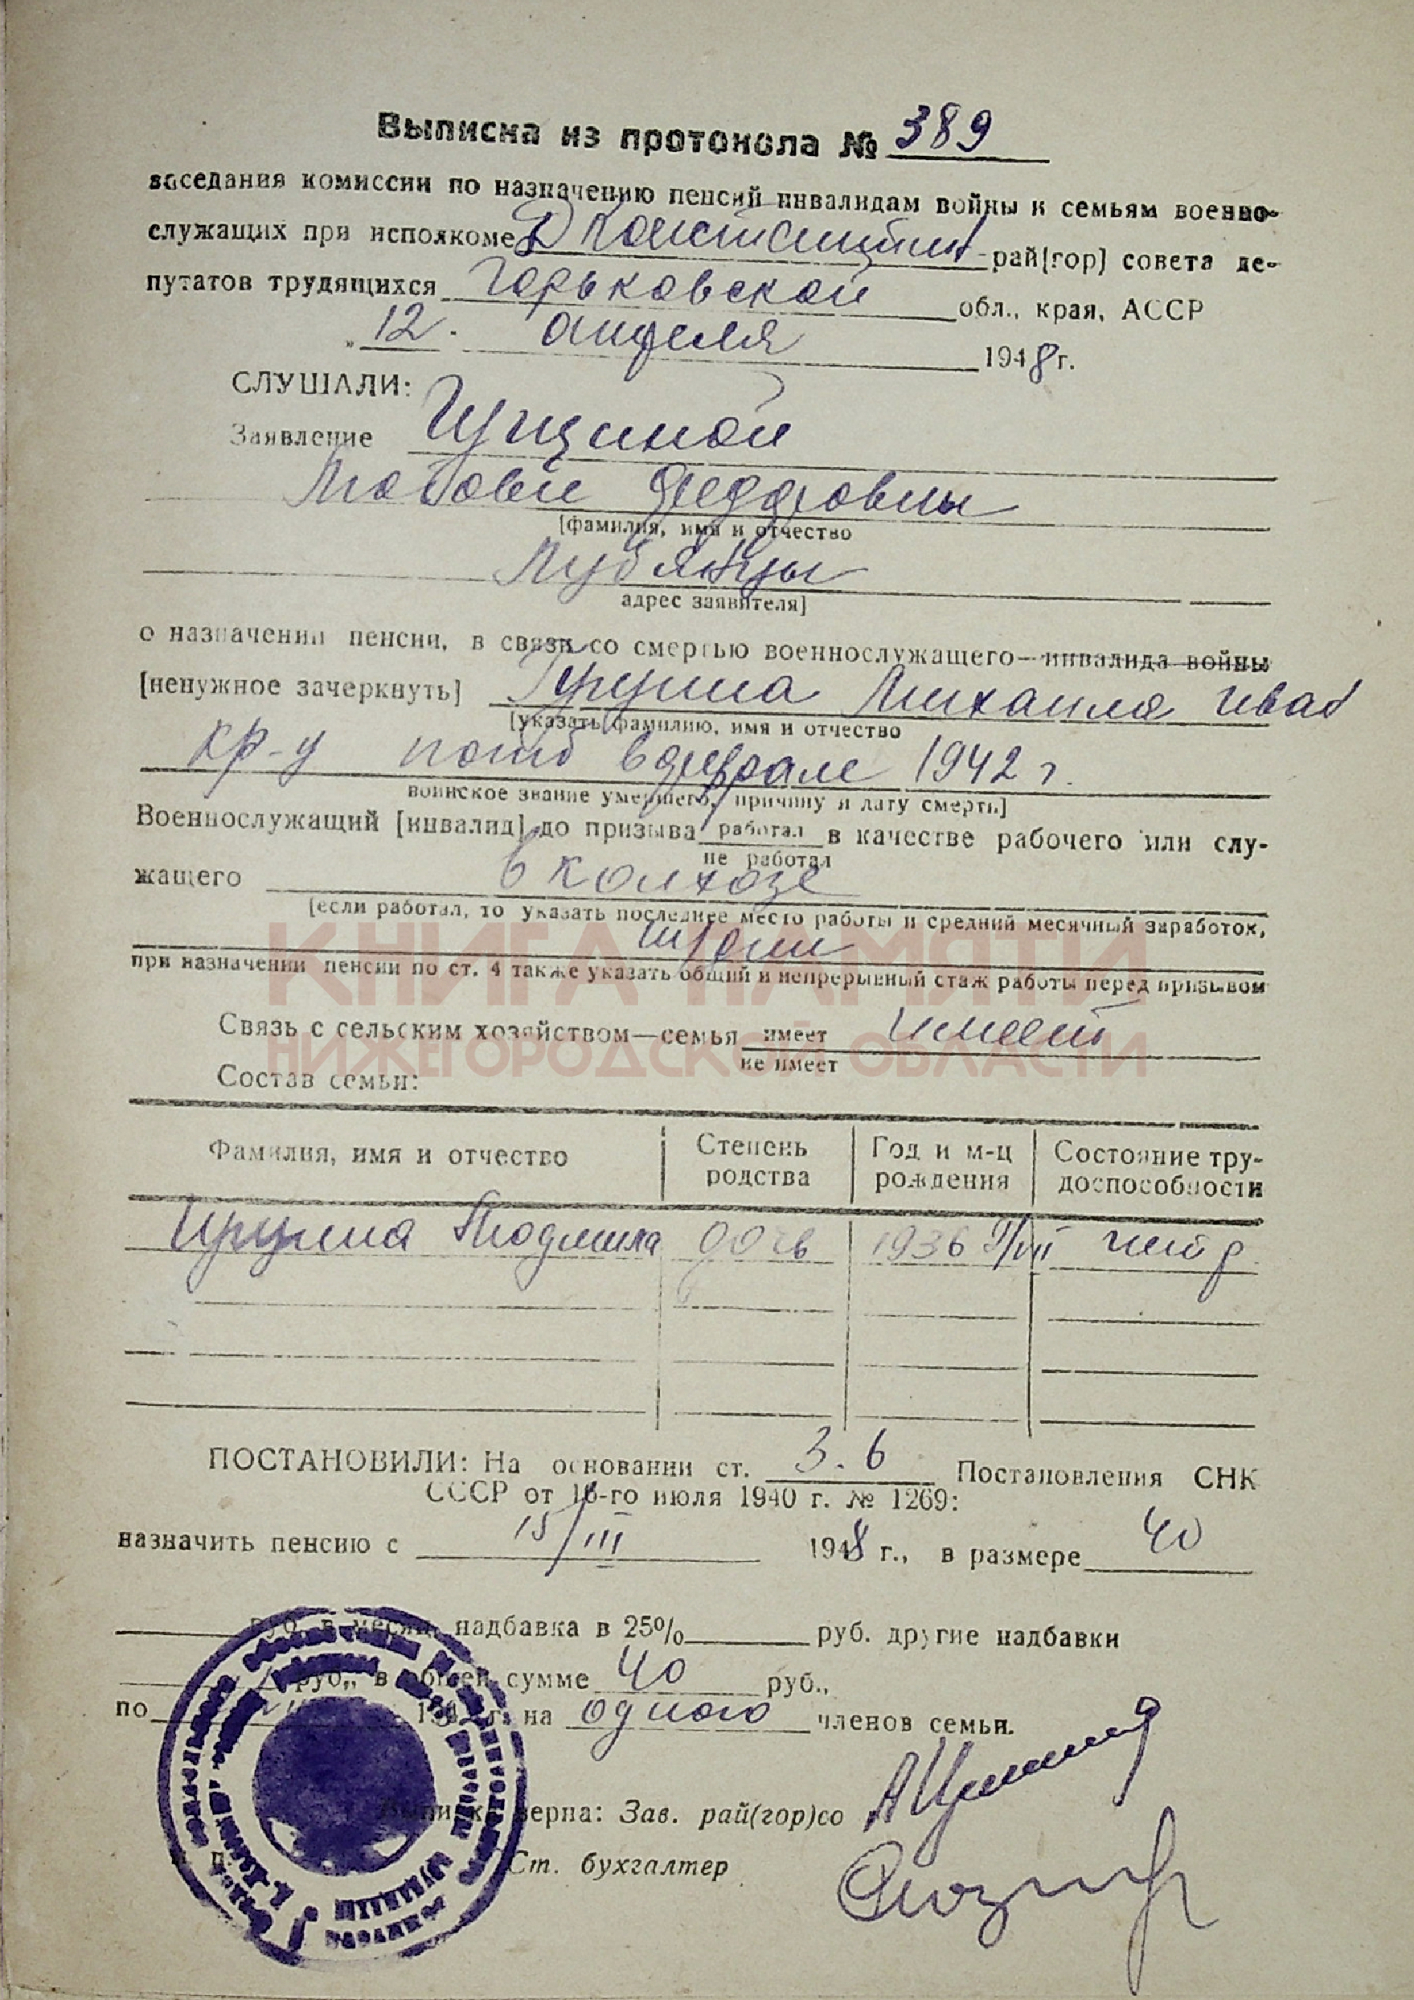 Выписка из протокола № 389
заседания комиссии по назначению пенсий инвалидам войны и семьям военно-
служащих при исполкоме Д Константин рай(гор) совета де-
путатов трудящихся Горьковской обл., края, АССР
„ 12. апреля 1948 г.
СЛУШАЛИ:
Заявление
Любови Федоровны
[фамилия, имя и отчество
адрес заявителя]
о назначении пенсии, в связи со смертью военнослужащего—инвалида войны
[ненужное зачеркнуть] Михаила Иваб
[указать фамилию, имя и отчество
кр-ц погиб в феврале 1942 г.
воинское звание умершего, причину и дату смерти]
Военнослужащий [инвалид] до призыва работал в качестве рабочего или слу-
не работал
жащего в колхозе
[если работал, то указать последнее место работы и средний месячный заработок,
КНИГА ПАМЯТИ
при назначении пенсии по ст. 4 также указать общий и непрерывный стаж работы перед призывом
Связь с сельским хозяйством—семья имеет имеет
НИЖЕГОРОДСКОЙ ОБЛАСТИ
не имеет
Состав семьи:
Фамилия, имя и отчество Степень родства Год и м-ц рождения Состояние тру-доспособности
Людмила дочь 1936
ПОСТАНОВИЛИ: На основании ст. 3.6 Постановления СНК
СССР от 16-го июля 1940 г. № 1269:
назначить пенсию с 15/III 1948 г., в размере 40
руб. в месяц, надбавка в 25% руб. другие надбавки
руб., в общей сумме 40 руб.,
по 194 г. на одного членов семьи.
Выписка верна: Зав. рай(гор)со
Ст. бухгалтер